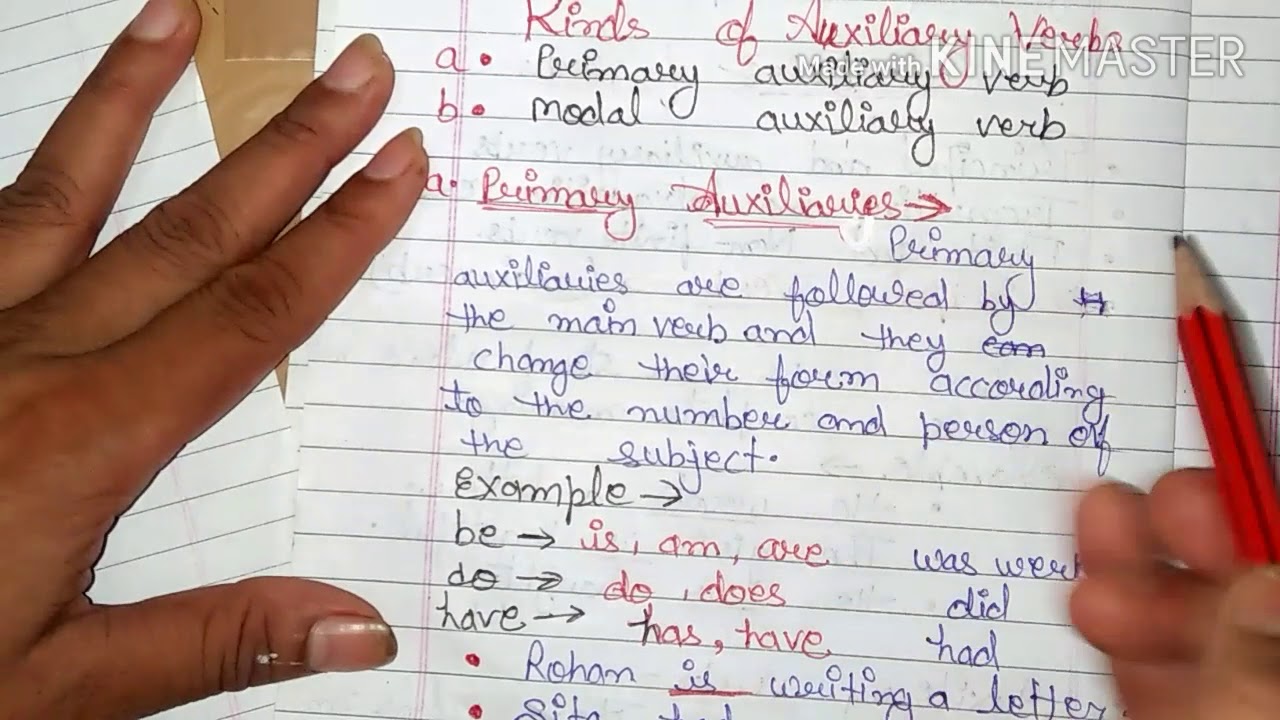 Kinds of Auxiliary Verbs
Made with KINEMASTER
a. Primary auxiliary verb
b. modal auxiliary verb
a. Primary Auxiliaries →
Primary
auxiliaries are followed by
the main verb and they can
change their form according
to the number and person of
the subject.
Example →
be → is, am, are was were
do → do, does did
have → has, have had
• Rohan is writing a letter.